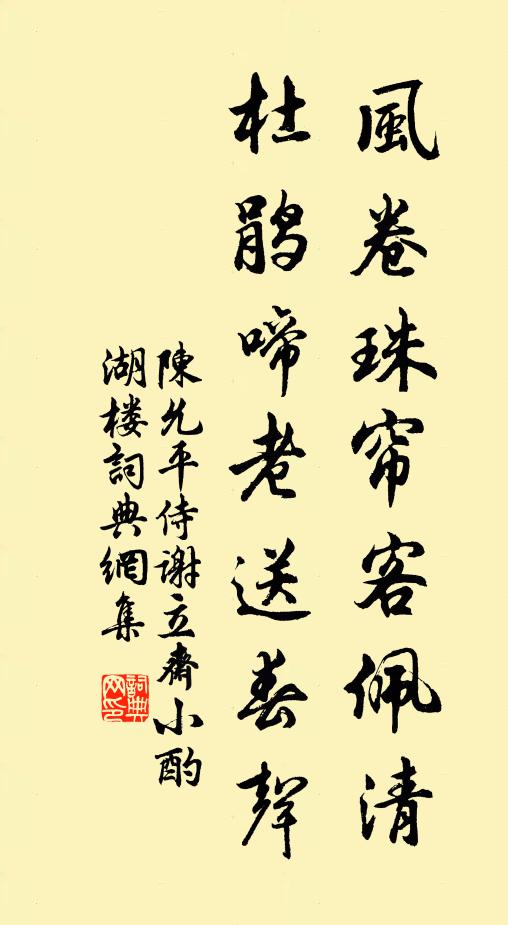 風卷珠帘客佩清
杜鹃啼老送春聲
陳允平侍謝立齋小酌
湖楼詞典網集
詞典網印